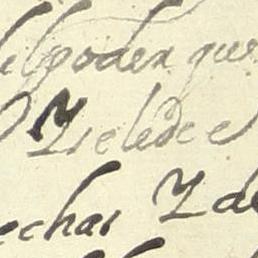 el poder que
Y se le de e
echas Y de